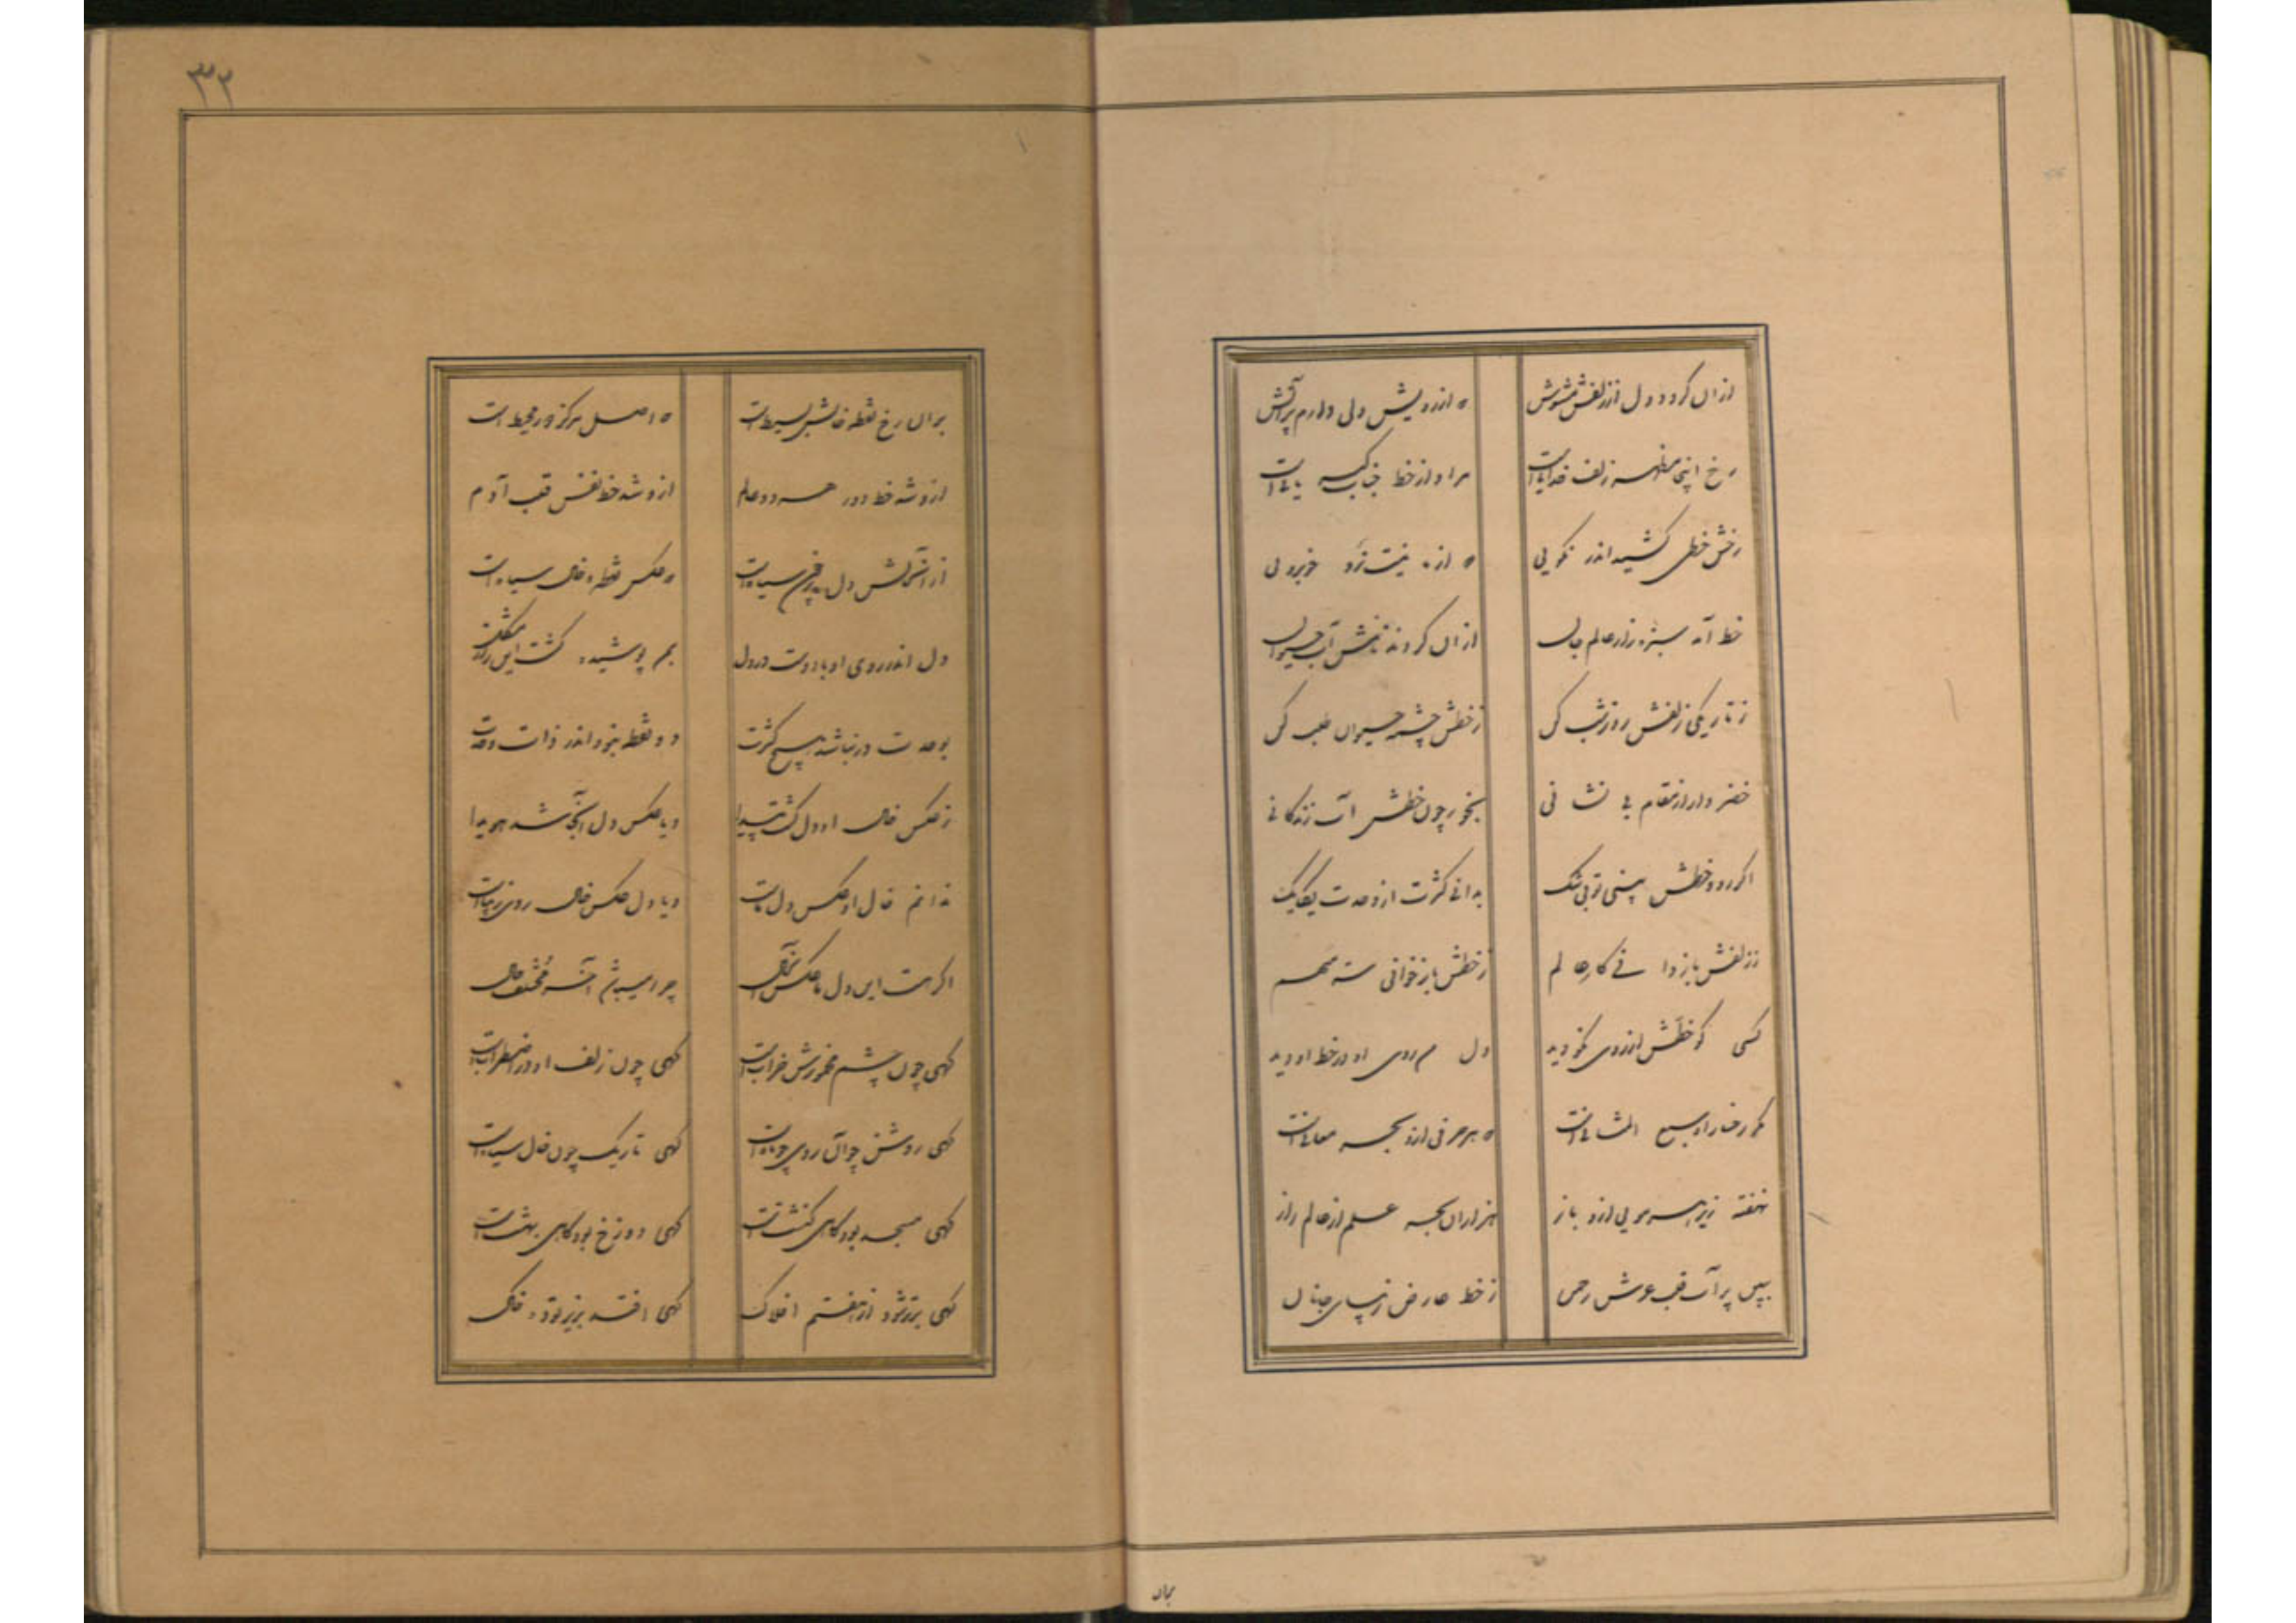 ازان گردد دل از زلفش مشوش
که از رویش دلی دارم پر آتش
رخ اینجا مظهر زلف خدایست
مراد از خط جناب کبریایست
رخش خطی کشید اندر نکویی
که از ما نیست بیرون خوبرویی
خط آمد سبزه زار عالم جان
ازان کردند نامش آب حیوان
ز تاریکی زلفش روز شب کن
ز خطش چشمه حیوان طلب کن
خضر وار از مقام بی نشانی
بخور چون خطش آب زندگانی
اگر رو و خطش بینی تو بی شک
بدانی کثرت از وحدت یکایک
ز زلفش باز دانی کار عالم
ز خطش باز خوانی سر مبهم
کسی کو خطش از روی نکو دید
دل من روی او در خط او دید
مگر رخسار او سبع المثانیست
که هر حرفی ازو بحر معانیست
نهفته زیر هر مویی ازو باز
هزاران بحر علم از عالم راز
ببین بر آب قلب عرش رحمن
ز خط عارض زیبای جانان
بران
۳۲
بران رخ نقطه خالش بسیط است
که اصل مرکز دور محیط است
ازو شد خط دور هر دو عالم
ازو شد خط نفس قلب آدم
از آن حالش دل پر خون سیاه است
که عکس نقطه خال سیاه است
دل اندر روی او یا اوست در دل
بمن پوشیده گشت این راز مشکل
بوحدت در نباشد هیچ کثرت
دو نقطه نبود اندر ذات وحدت
ز عکس خال او دل گشت پیدا
و یا عکس دل آنجا شد هویدا
ندانم خال او عکس دل ماست
و یا دل عکس خال روی زیباست
اگر هست این دل ما عکس آن خال
چرا میباشد آخر مختلف حال
گهی چون چشم مخمورش خرابست
گهی چون زلف او در اضطرابست
گهی روشن چو آن روی چو ماه است
گهی تاریک چون خال سیاه است
گهی مسجد بود گاهی کنشت است
گهی دوزخ بود گاهی بهشت است
گهی برتر شود از هفتم افلاک
گهی افتد بزیر توده خاک